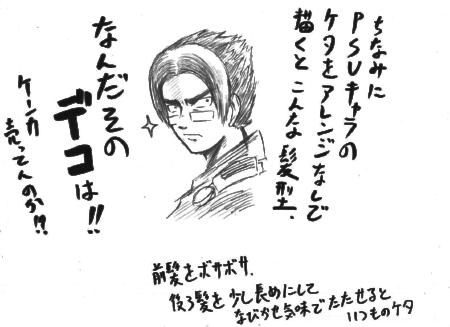 ちなみに
PSUキャラの
ケタをアレンジなしで
描くと こんな髪型.
なんだその
デコは!!
ケーンカ
売ってんのか!?
前髪をボサボサ.
後ろ髪を少し長めにして
なびかせ気味でたたせると
いつものケタ